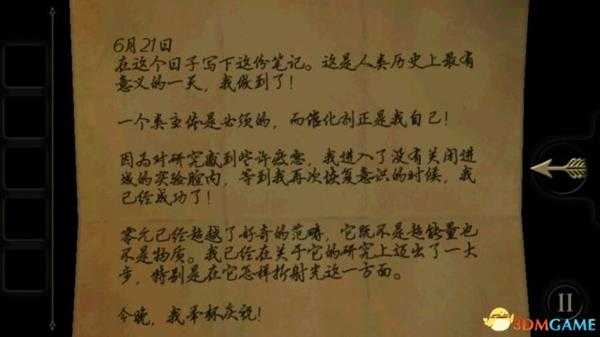 6月21日
在这个日子写下这份笔记。这是人类历史上最有
意义的一天,我做到了!
一个类主体是必须的,而催化剂正是我自己!
因为对研究感到些许疲惫,我进入了没有关闭进
城的实验腔内,等到我再次恢复意识的时候,我
已经成功了!
零元已经超越了好奇的范畴,它既不是超能量也
不是物质。我已经在关于它的研究上迈出了一大
步,特别是在它怎样折射光这一方面。
今晚,我举杯庆祝!
3DMGAME